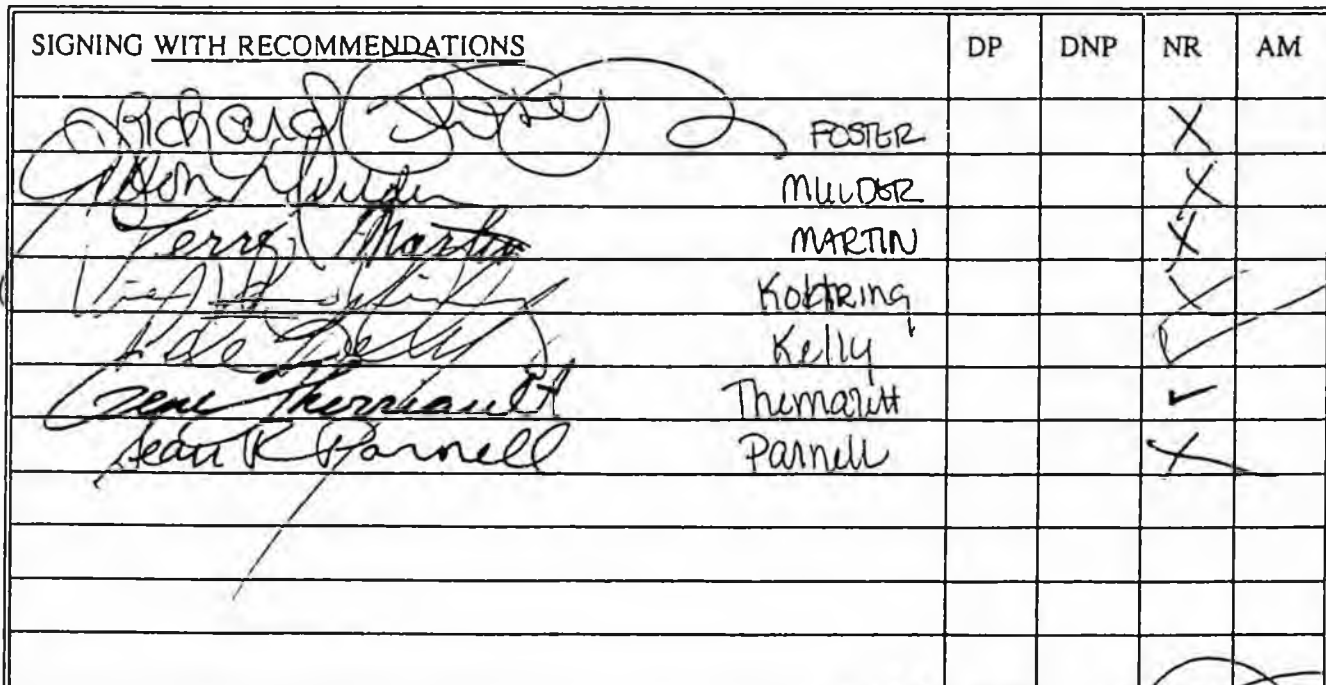 SIGNING WITH RECOMMENDATIONS DP DNP NR AM
Richard Foster FOSTER X
Mulder MULDER X
Terry Martin MARTIN X
Kohring X
Pete Kelly Kelly ✓
Gene Therriault Therriault ✓
Sean R Parnell Parnell X